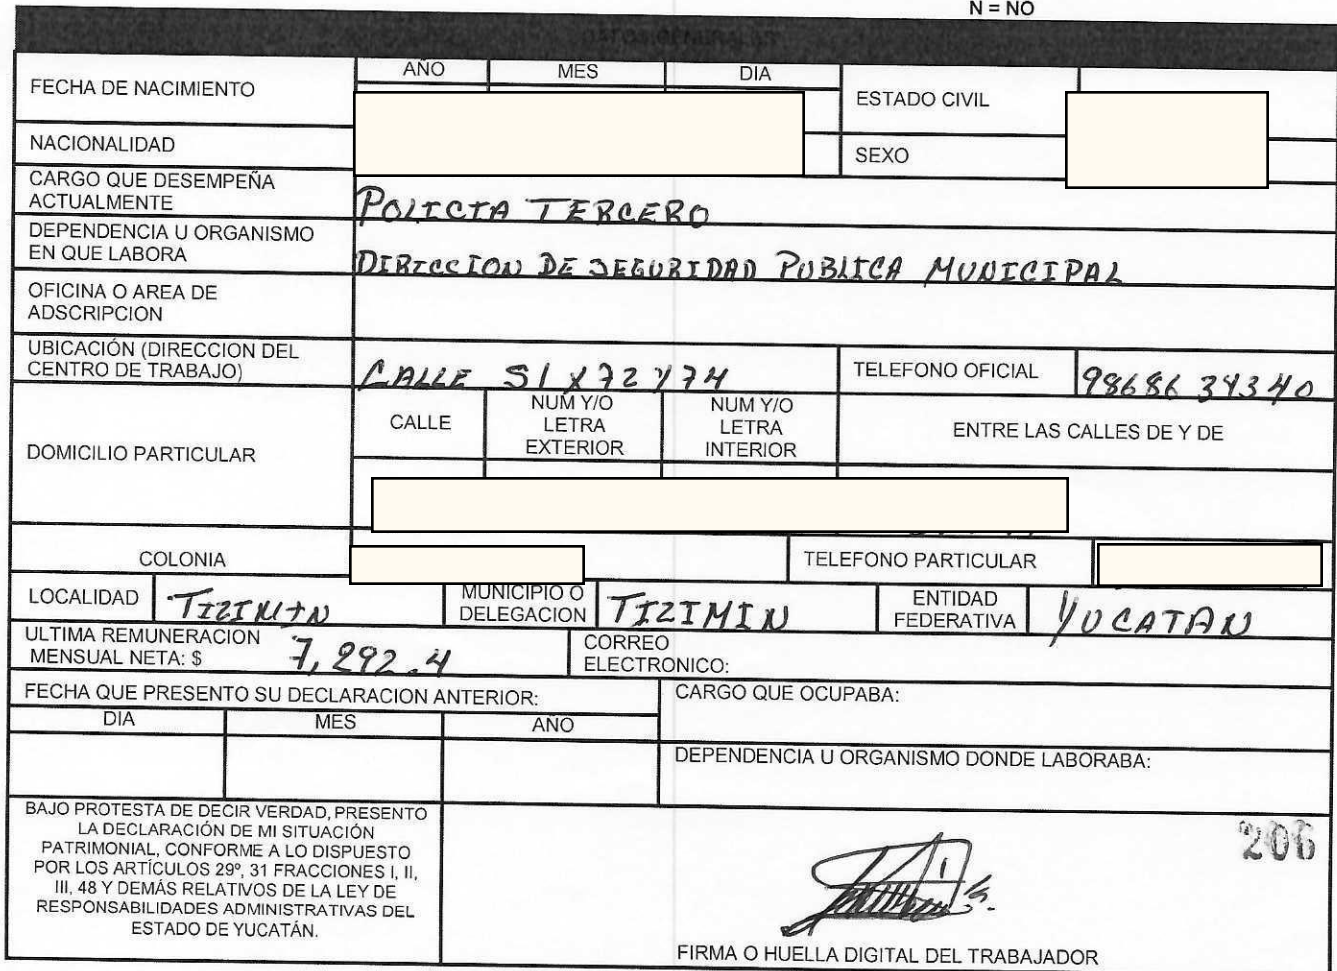 N = NO
AÑO MES DIA
FECHA DE NACIMIENTO
ESTADO CIVIL
NACIONALIDAD
SEXO
CARGO QUE DESEMPEÑA
ACTUALMENTE
POLICIA TERCERO
DEPENDENCIA U ORGANISMO
EN QUE LABORA
DIRECCION DE SEGURIDAD PUBLICA MUNICIPAL
OFICINA O AREA DE
ADSCRIPCION
UBICACIÓN (DIRECCION DEL
CENTRO DE TRABAJO)
CALLE 51 X 72 Y 74
TELEFONO OFICIAL
98686 34340
DOMICILIO PARTICULAR
CALLE
NUM Y/O
LETRA
EXTERIOR
NUM Y/O
LETRA
INTERIOR
ENTRE LAS CALLES DE Y DE
COLONIA
TELEFONO PARTICULAR
LOCALIDAD
TIZIMIN
MUNICIPIO O
DELEGACION
TIZIMIN
ENTIDAD
FEDERATIVA
YUCATAN
ULTIMA REMUNERACION
MENSUAL NETA: $ 7,292.4
CORREO
ELECTRONICO:
FECHA QUE PRESENTO SU DECLARACION ANTERIOR:
DIA MES AÑO
CARGO QUE OCUPABA:
DEPENDENCIA U ORGANISMO DONDE LABORABA:
BAJO PROTESTA DE DECIR VERDAD, PRESENTO
LA DECLARACIÓN DE MI SITUACIÓN
PATRIMONIAL, CONFORME A LO DISPUESTO
POR LOS ARTÍCULOS 29º, 31 FRACCIONES I, II,
III, 48 Y DEMÁS RELATIVOS DE LA LEY DE
RESPONSABILIDADES ADMINISTRATIVAS DEL
ESTADO DE YUCATÁN.
206
FIRMA O HUELLA DIGITAL DEL TRABAJADOR